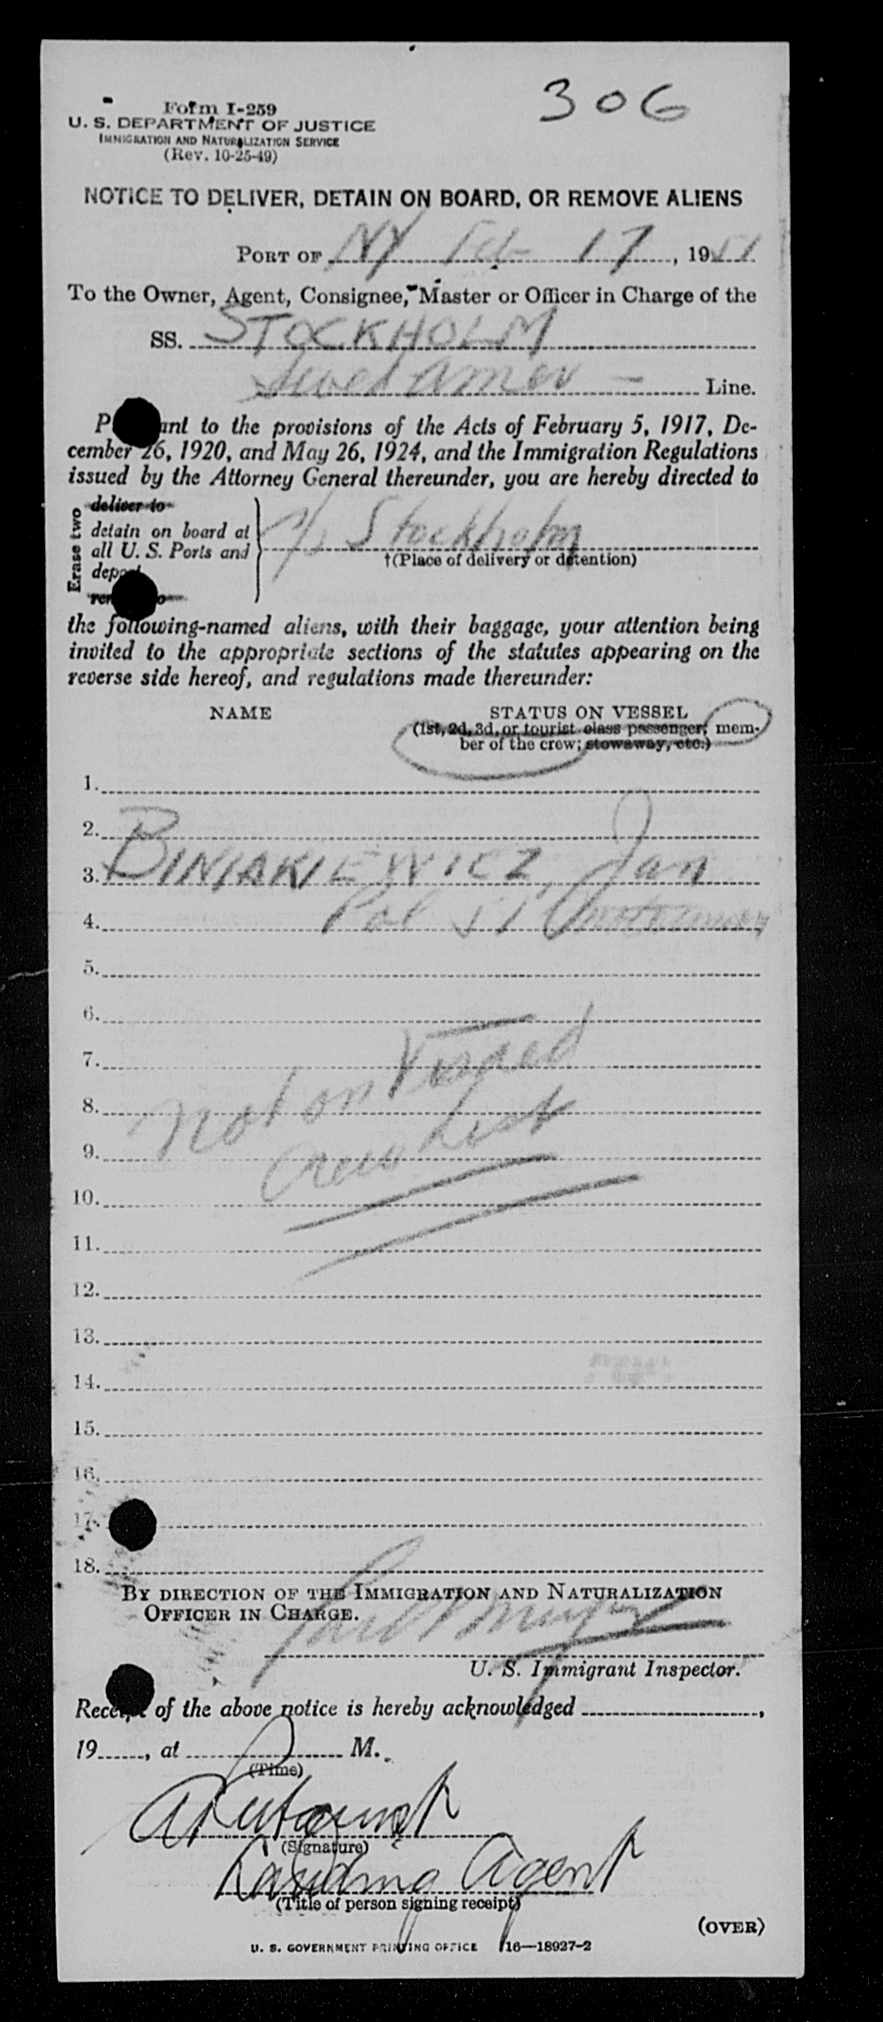 306
Form I-259
U. S. DEPARTMENT OF JUSTICE
IMMIGRATION AND NATURALIZATION SERVICE
(Rev. 10-25-49)
NOTICE TO DELIVER, DETAIN ON BOARD, OR REMOVE ALIENS
PORT OF NY Feb 17, 1951
To the Owner, Agent, Consignee, Master or Officer in Charge of the
SS. STOCKHOLM
Swed Amer — Line.
P ant to the provisions of the Acts of February 5, 1917, De-
cember 26, 1920, and May 26, 1924, and the Immigration Regulations
issued by the Attorney General thereunder, you are hereby directed to
Erase two
deliver to
detain on board at
all U. S. Ports and
deport
Stockholm
†(Place of delivery or detention)
the following-named aliens, with their baggage, your attention being
invited to the appropriate sections of the statutes appearing on the
reverse side hereof, and regulations made thereunder:
NAME STATUS ON VESSEL
(1st, 2d, 3d, or tourist class passenger; mem-
ber of the crew; stowaway, etc.)
1.
2.
3. BINIAKIEWICZ, Jan
4. Pol 51 motorman
5.
6.
7.
8. not on Visaed
9. Crew List
10.
11.
12.
13.
14.
15.
16.
17.
18.
BY DIRECTION OF THE IMMIGRATION AND NATURALIZATION
OFFICER IN CHARGE.
U. S. Immigrant Inspector.
Receipt of the above notice is hereby acknowledged ,
19 , at M.
(Time)
(Signature)
Landing Agent
(Title of person signing receipt)
(OVER)
U. S. GOVERNMENT PRINTING OFFICE 16—18927-2